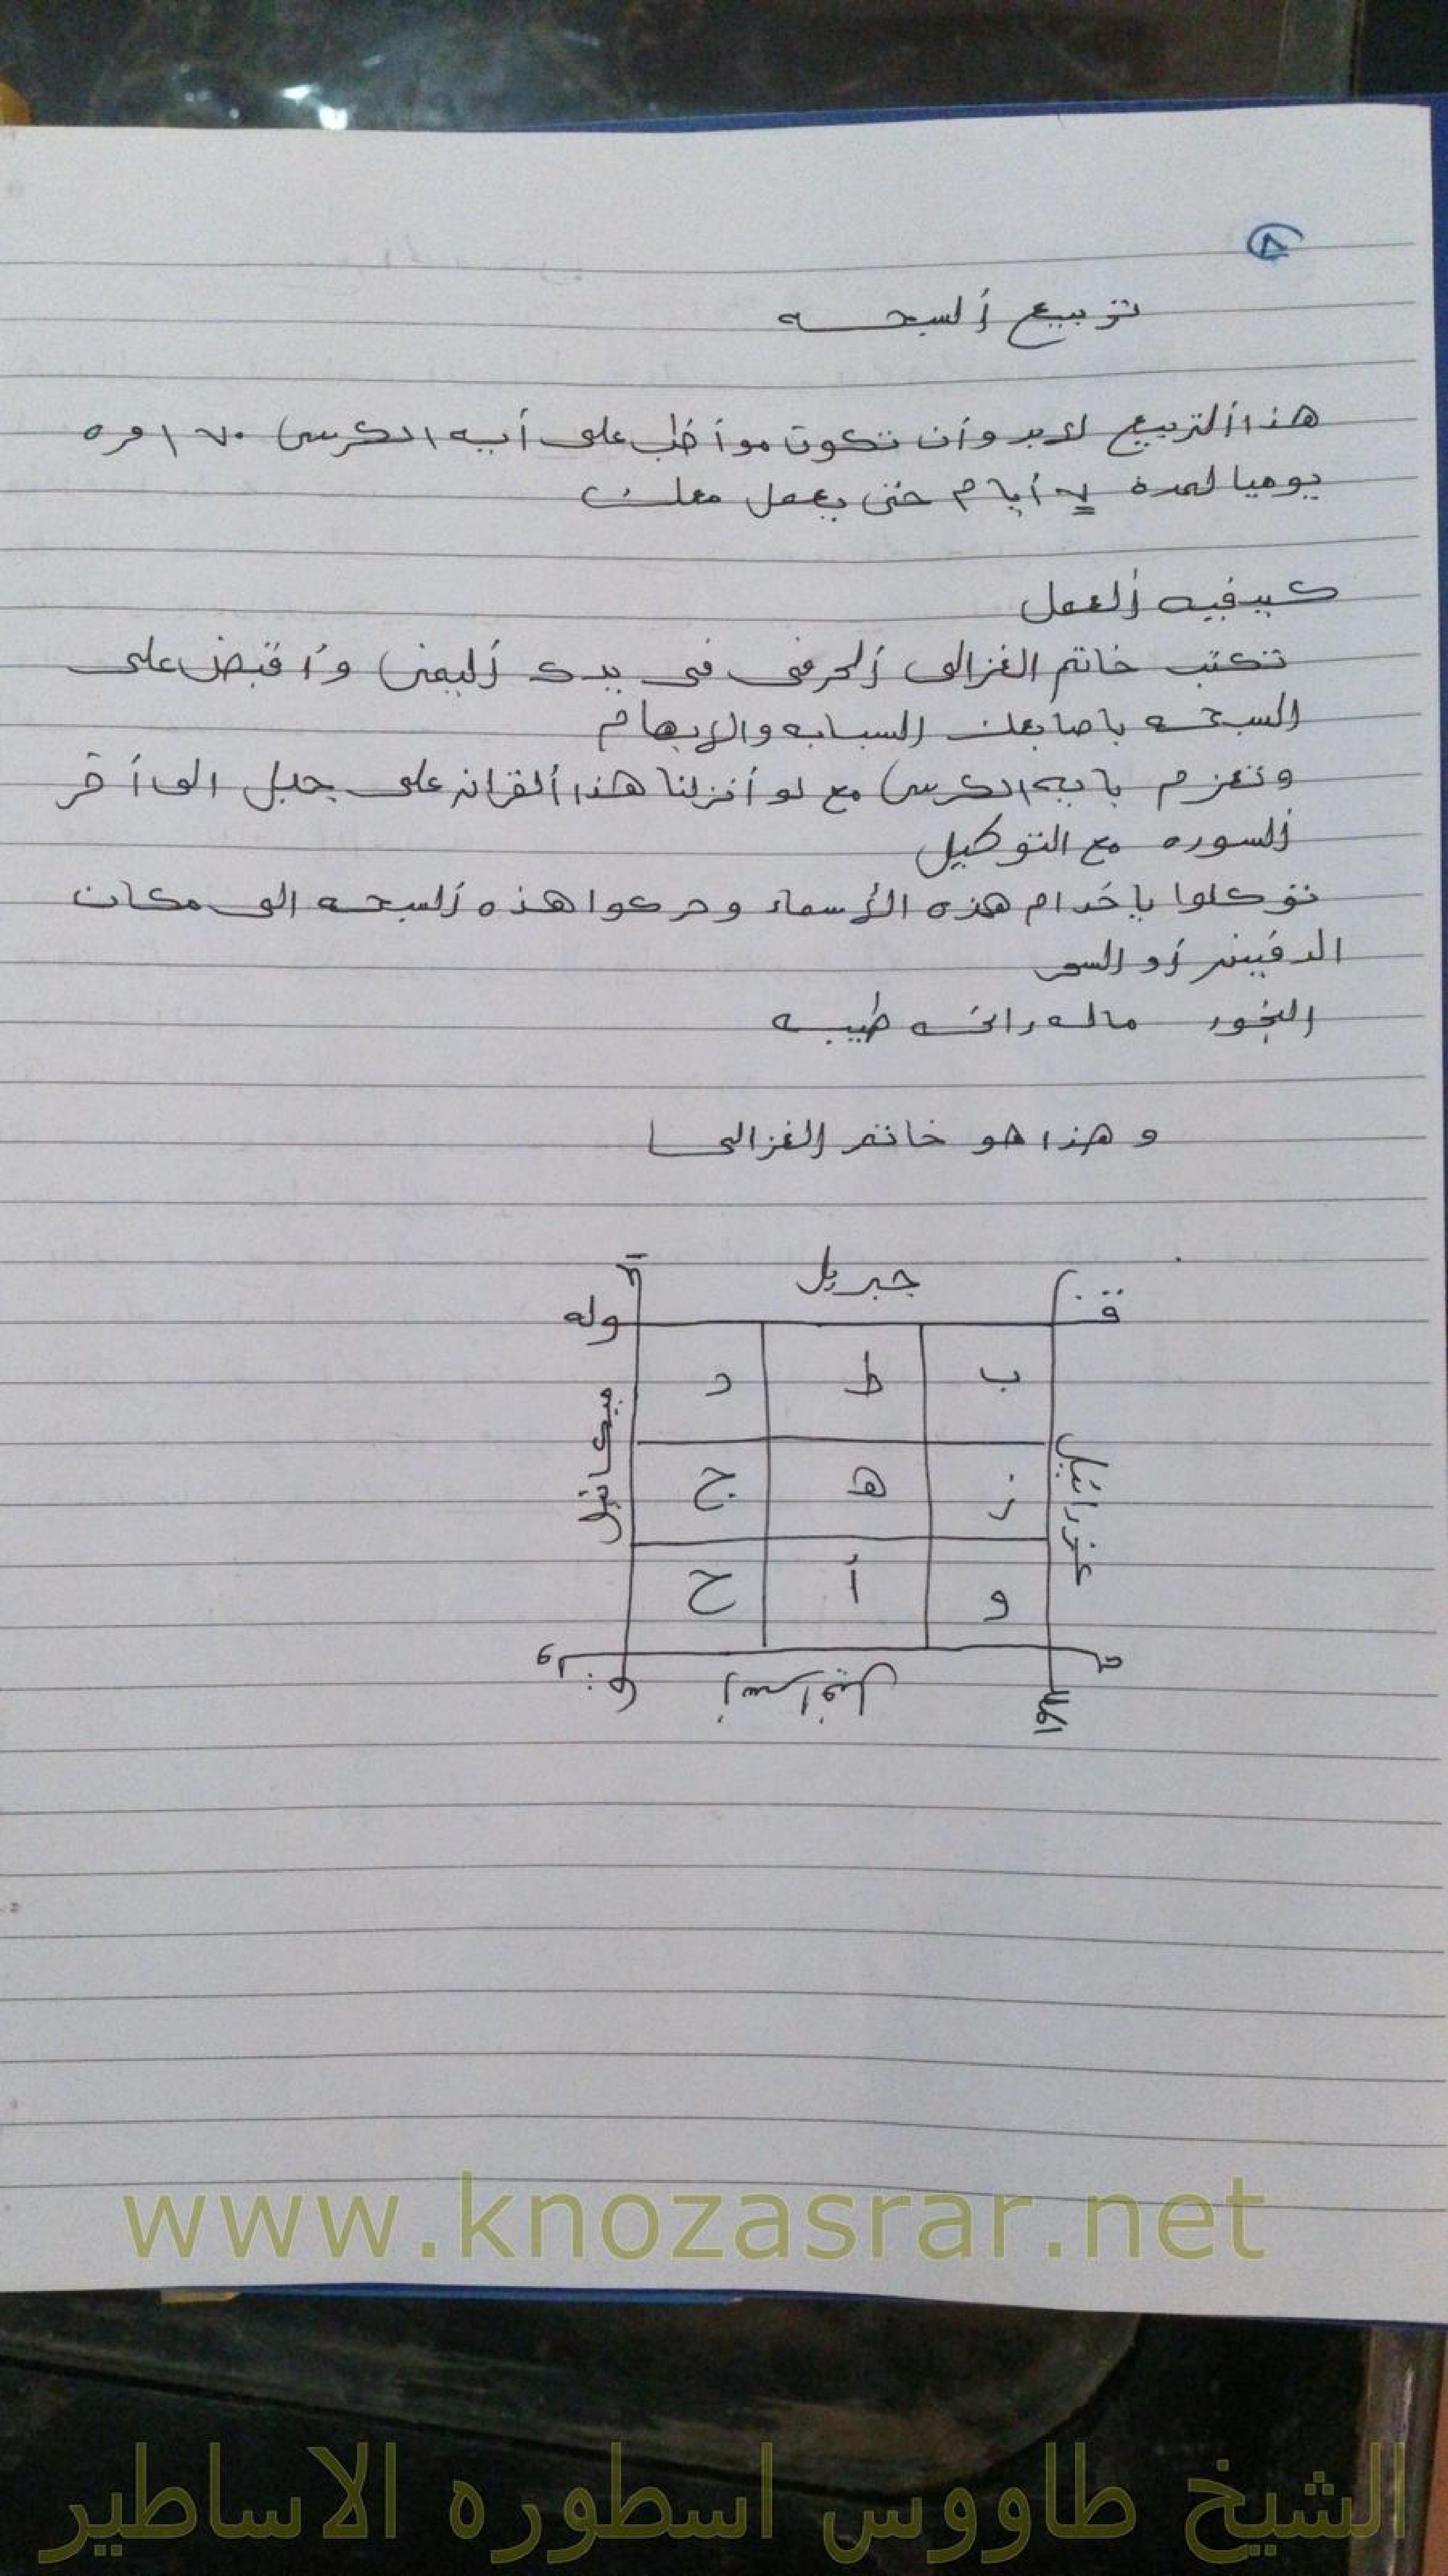 ٨
تربيع ألسبحه
هذا ألتربيع لابد وأن تكون موأظب على أيه الكرسى ١٧٠ مره
يوميا لمدة ٧ أيام حتى يعمل معك
كيفيه ألعمل
تكتب خاتم الغزالى ألحرفى فى يدك أليمنى وأقبض على
السبحه باصابعك السبابه والإبهام
وتعزم بايه الكرسى مع لو أنزلنا هذا ألقران على جبل الى أخر
ألسوره مع التوكيل
توكلوا ياخدام هذه الأسماء وحركوا هذه ألسبحه الى مكان
الدفينه أو السحر
البخور ماله رائحه طيبه
وهذا هو خاتم الغزالى
جبريل
وله
ب ط د
عزرائيل
ميكائيل
ز ه ج
و أ ح
إسرافيل
www.knozasrar.net
الشيخ طاووس اسطوره الاساطير